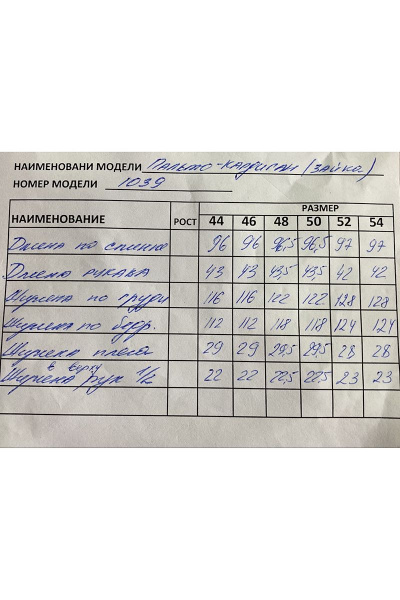 НАИМЕНОВАНИ МОДЕЛИ Пальто-кардиган (зайка)
НОМЕР МОДЕЛИ 1039
НАИМЕНОВАНИЕ РОСТ РАЗМЕР
44 46 48 50 52 54
Длина по спинке 96 96 96,5 96,5 97 97
Длина рукава 43 43 43,5 43,5 42 42
Ширина по груди 116 116 122 122 128 128
Ширина по бедр. 112 112 118 118 124 124
Ширина плеча 29 29 29,5 29,5 28 28
в верху
Ширина рук 1/2 22 22 22,5 22,5 23 23